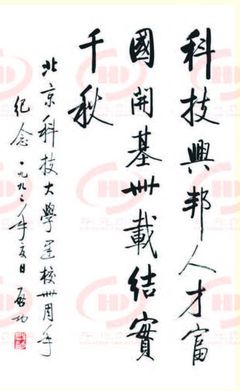 科技興邦人才富
國開基卌載結實
千秋
北京科技大學建校卌周年
紀念一九九二年夏日 启功